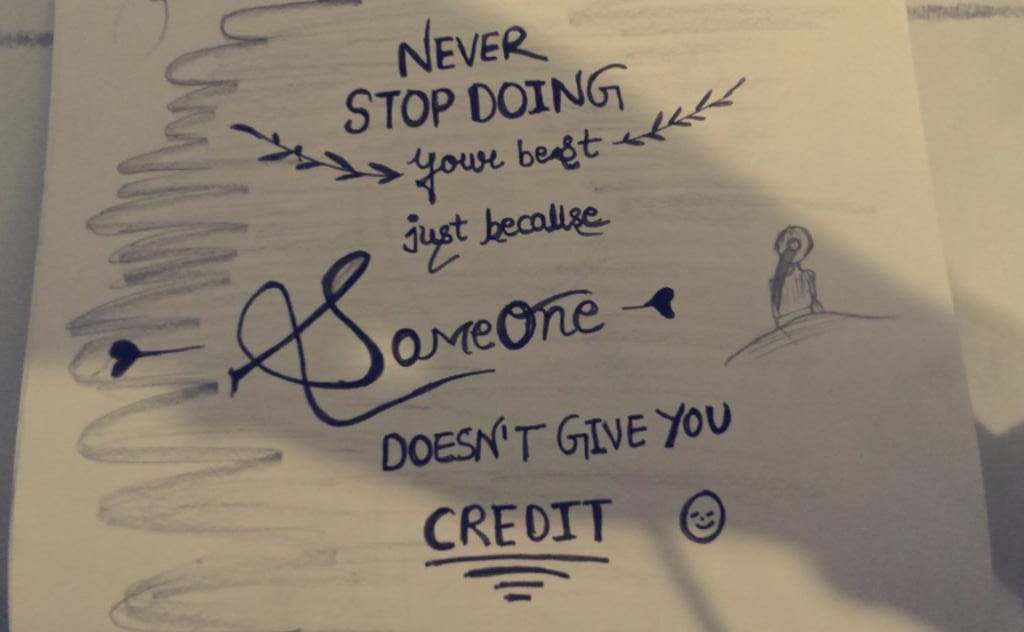 NEVER
STOP DOING
your best
just because
SomeOne
DOESN'T GIVE YOU
CREDIT